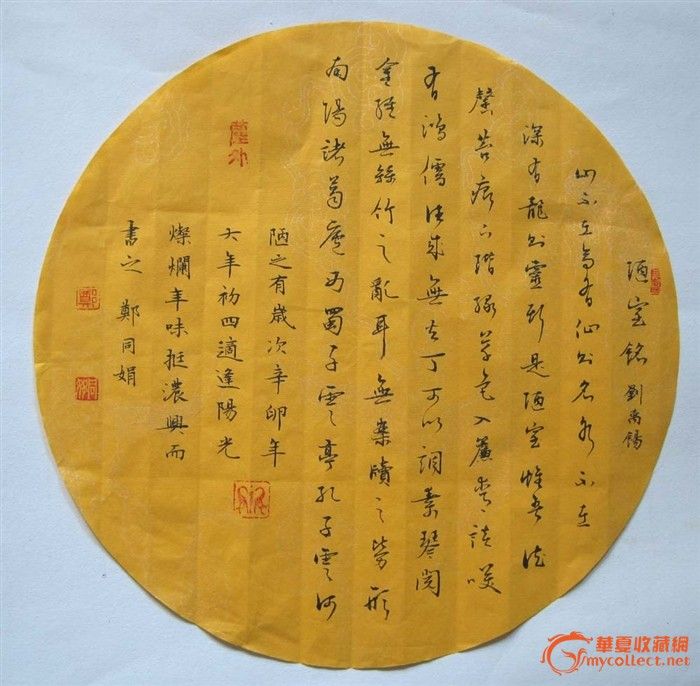 陋室銘 劉禹錫
山不在高有仙則名水不在
深有龍則靈斯是陋室惟吾德
馨苔痕上階緑草色入簾青談笑
有鴻儒往來無白丁可以調素琴閱
金經無絲竹之亂耳無案牘之勞形
南陽諸葛廬西蜀子雲亭孔子雲何
陋之有歲次辛卯年
大年初四適逢陽光
燦爛年味挺濃興而
書之 鄭同娟
鄭
華夏收藏網
mycollect.net